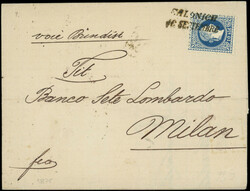 SALONICH
voie Brindisi
Tit
Banco Sete Lombardo
Milan
fco